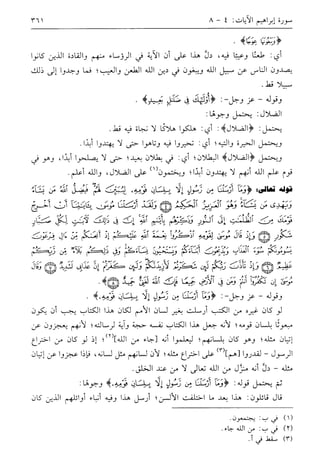 سورة إبراهيم الآيات: ٤ - ٨
٣٦١
﴿وَيَبْغُونَهَا عِوَجًا﴾ .
أي: طعنًا وعيبًا فيه، دلَّ هذا على أن الآية في الرؤساء منهم والقادة الذين كانوا
يصدون الناس عن سبيل الله ويبغون في دين الله الطعن والعيب؛ فما وجدوا إلى ذلك
سبيلا قط.
وقوله - عز وجل-: ﴿أُولَٰئِكَ فِي ضَلَالٍ بَعِيدٍ﴾ .
الضلال: يحتمل وجوهًا:
يحتمل: ﴿الضلال﴾: أي: هلكوا هلاكًا لا نجاة فيه قط.
ويحتمل الحيرة والتيه؛ أي: تحيروا فيه وتاهوا حتى لا يهتدوا أبدًا.
ويحتمل ﴿الضلال﴾ البطلان؛ أي: في بطلان بعيد؛ حتى لا يصلحوا أبدًا، وهو في
قوم علم الله أنهم لا يهتدون أبدًا ويختمون(١) على الضلال، والله أعلم.
قوله تعالى: ﴿وَمَا أَرْسَلْنَا مِن رَّسُولٍ إِلَّا بِلِسَانِ قَوْمِهِ لِيُبَيِّنَ لَهُمْ فَيُضِلُّ اللَّهُ مَن يَشَاءُ
وَيَهْدِي مَن يَشَاءُ وَهُوَ الْعَزِيزُ الْحَكِيمُ ۝ وَلَقَدْ أَرْسَلْنَا مُوسَىٰ بِآيَاتِنَا أَنْ أَخْرِجْ
قَوْمَكَ مِنَ الظُّلُمَاتِ إِلَى النُّورِ وَذَكِّرْهُم بِأَيَّامِ اللَّهِ إِنَّ فِي ذَٰلِكَ لَآيَاتٍ لِّكُلِّ صَبَّارٍ
شَكُورٍ ۝ وَإِذْ قَالَ مُوسَىٰ لِقَوْمِهِ اذْكُرُوا نِعْمَةَ اللَّهِ عَلَيْكُمْ إِذْ أَنجَاكُم مِّنْ آلِ فِرْعَوْنَ
يَسُومُونَكُمْ سُوءَ الْعَذَابِ وَيُذَبِّحُونَ أَبْنَاءَكُمْ وَيَسْتَحْيُونَ نِسَاءَكُمْ وَفِي ذَٰلِكُم بَلَاءٌ مِّن رَّبِّكُمْ
عَظِيمٌ ۝ وَإِذْ تَأَذَّنَ رَبُّكُمْ لَئِن شَكَرْتُمْ لَأَزِيدَنَّكُمْ وَلَئِن كَفَرْتُمْ إِنَّ عَذَابِي لَشَدِيدٌ ۝ وَقَالَ
مُوسَىٰ إِن تَكْفُرُوا أَنتُمْ وَمَن فِي الْأَرْضِ جَمِيعًا فَإِنَّ اللَّهَ لَغَنِيٌّ حَمِيدٌ ۝﴾ .
وقوله - عز وجل-: ﴿وَمَا أَرْسَلْنَا مِن رَّسُولٍ إِلَّا بِلِسَانِ قَوْمِهِ﴾ .
لو كان غيره من الكتب أرسلت بغير لسان الأمم لكان هذا الكتاب يجب أن يكون
مبعوثًا بلسان قومه؛ لأنه جعل هذا الكتاب نفسه حجة وآية لرسالته؛ لأنهم يعجزون عن
إتيان مثله؛ وهو كان بلسانهم؛ ليعلموا أنه [جاء من الله](٢)؛ إذ لو كان من اختراع
الرسول - لقدروا [هم](٣) على اختراع مثله؛ لأن لسانهم مثل لسانه، فإذا عجزوا عن إتيان
مثله - دلَّ أنه منزل من الله تعالى لا من عند الخلق.
ثم يحتمل قوله: ﴿وَمَا أَرْسَلْنَا مِن رَّسُولٍ إِلَّا بِلِسَانِ قَوْمِهِ﴾ وجوهًا:
قال قائلون: هذا بعد ما اختلفت الألسن؛ أرسل هذا وفيه أنباء أوائلهم الذين كان
(١) في ب: يجتمعون.
(٢) في ب: من الله جاء.
(٣) سقط في أ.